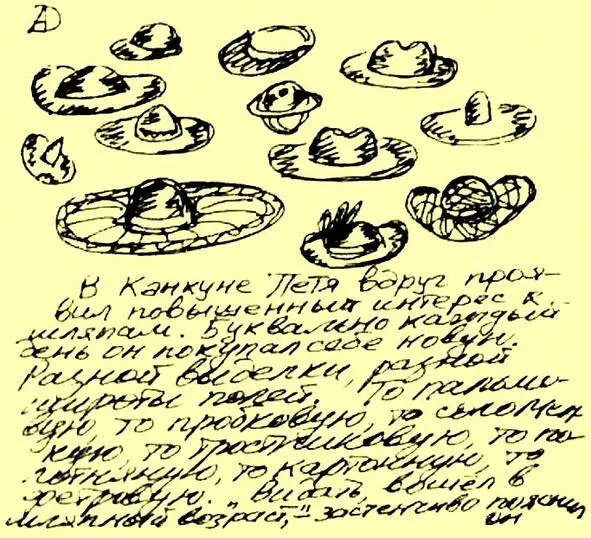 В Канкуне Петя вдруг проя-
вил повышенный интерес к
шляпам. Буквально каждый
день он покупал себе новую.
Разной выделки, разной
широты полей. То пальмо-
вую, то пробковую, то соломен
ную, то тростниковую, то по-
лотняную, то картонную, то
фетровую. "Видать, вышел в
шляпный возраст," – застенчиво пояснил
он